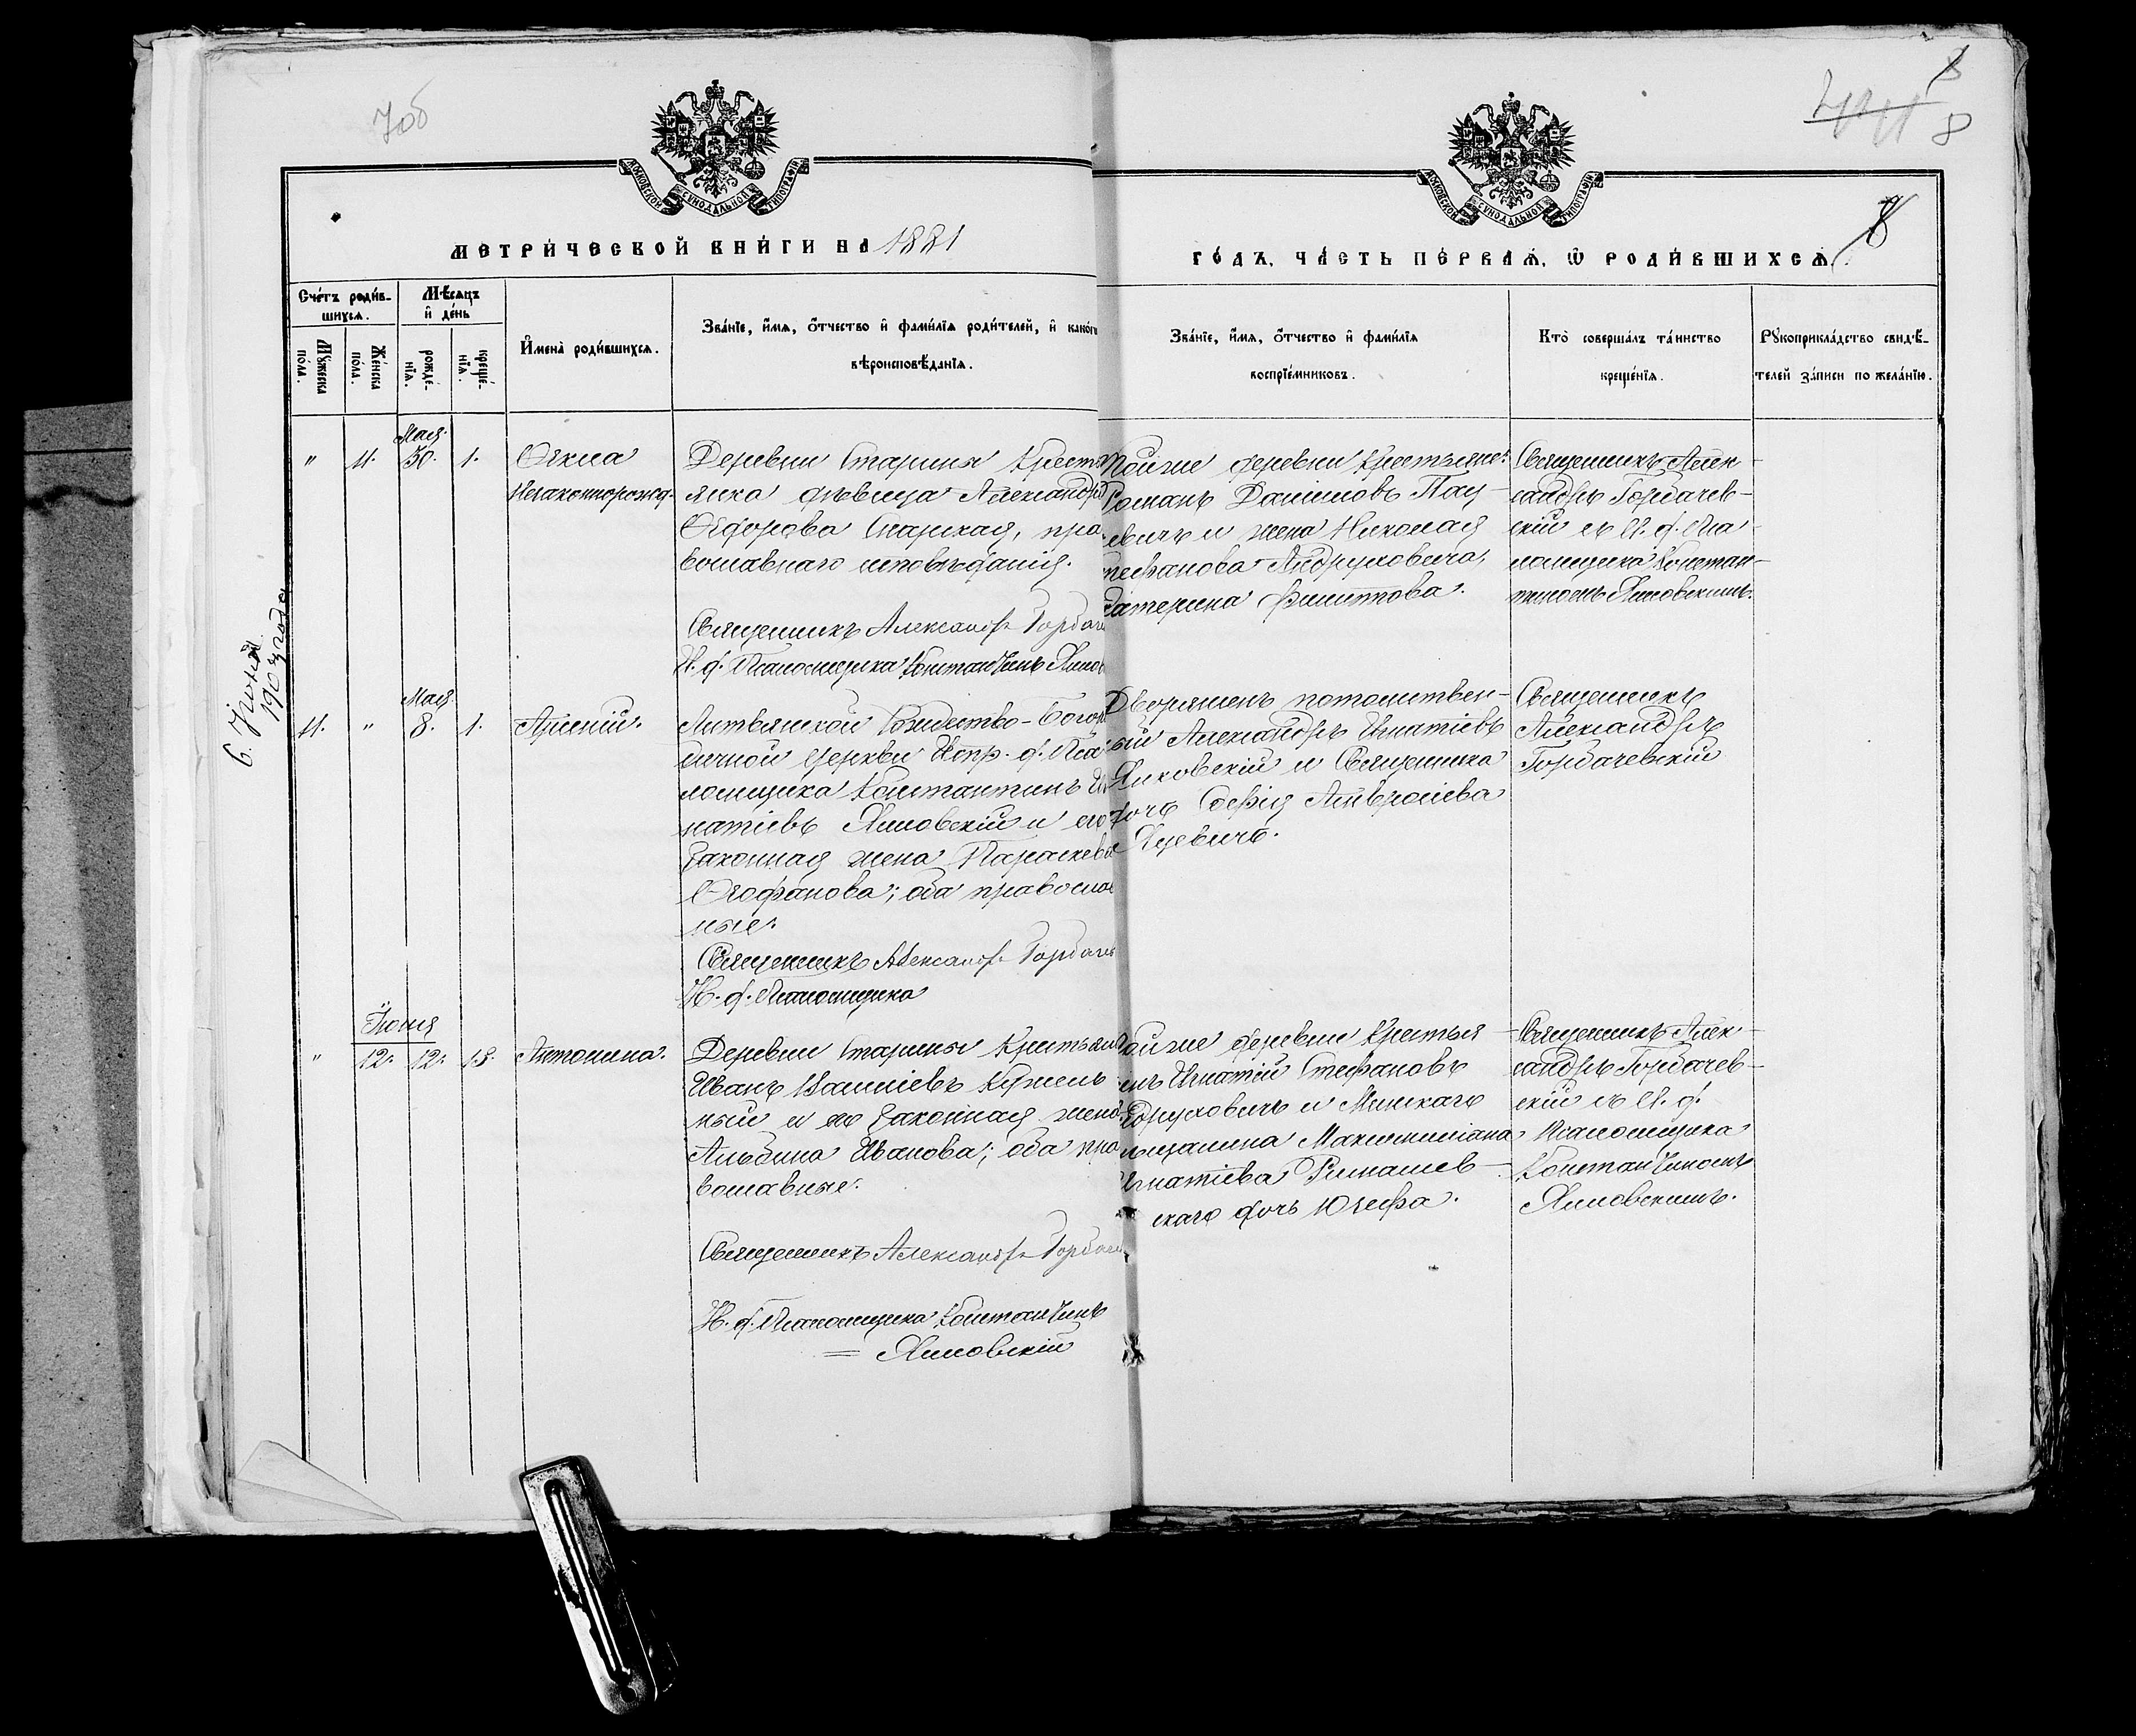 706
8
8
МОСКОВСКОЙ СѴНОДАЛЬНОЙ ТИПОГРАФІИ
МОСКОВСКОЙ СѴНОДАЛЬНОЙ ТИПОГРАФІИ
МЕТРИ́ЧЕСКОЙ КНИ́ГИ НА 1881
ГО́ДЪ, ЧА́СТЬ ПЕ́РВАѦ, Ѡ РОДИ́ВШИХСѦ.
Сче́тъ роди́в-
шихсѧ.
Мꙋ́жеска по́ла.
Же́нска по́ла.
Мѣ́сѧцъ
и҆ де́нь
рожде́-
нїѧ.
креще́-
нїѧ.
И҆мена̀ роди́вшихсѧ.
Зва́нїе, и҆́мѧ, ѻ҆́тчество и҆ фами́лїѧ роди́телей, и҆ како́гѡ
вѣроисповѣ́данїѧ.
Зва́нїе, и҆́мѧ, ѻ҆́тчество и҆ фами́лїѧ
воспрїе́мниковъ.
Кто̀ соверша́лъ та́инство
креще́нїѧ.
Рꙋкоприкла́дство свидѣ́-
телей за́писи по жела́нїю.
6. Іюня
1903 года
Мая.
" 11. 30. 1.
Ѳекла
Незаконнорожд.
Деревни Старины Крестья
янка дѣвица Александра
Ѳедорова Старская, пра-
вославнаго исповѣданія.
Священникъ Александръ Горбаче
И. д. Псаломщика Константинъ Ялов
Той же деревни Крестьяне:
Романъ Даниловъ Пац-
евичъ и жена Николая
Стефанова Андруховича,
Катерина Филиппова.
Священникъ Алек-
сандръ Горбачев-
скій съ И. д. Пса-
ломщика Констан-
тиномъ Яловскимъ.
Мая.
11. " 8. 1.
Арсеній.
Литвянской Рождество-Богоро
дичной церкви Испр. д. Пса
ломщика Константинъ Иг
натіевъ Яловскій и его
законная жена Параскева
Ѳеофанова; оба православ
ные.
Священникъ Александръ Горбаче
И. д. Псаломщика
Дворянинъ потомствен-
ный Александръ Игнатіевъ
Яловскій и Священника
дочь Софія Амвросіева
Яцевичъ.
Священникъ
Александръ
Горбачевскій
Іюня
" 12. 12. 13.
Антонина.
Деревни Старины Крестьянинъ
Иванъ Васильевъ Кужель-
ный и его законная жена
Альбина Иванова; оба пра
вославные.
Священникъ Александръ Горбаче
И. д. Псаломщика Константинъ
= Яловскій
Той же деревни Крестья-
нинъ Игнатій Стефановъ
Андруховичъ и Минскаго
мѣщанина Максимиліана
Игнатіева Римашев-
скаго дочь Юзефа.
Священникъ Алек-
сандръ Горбачев-
скій съ И. д.
Псаломщика
Константиномъ
Яловскимъ.